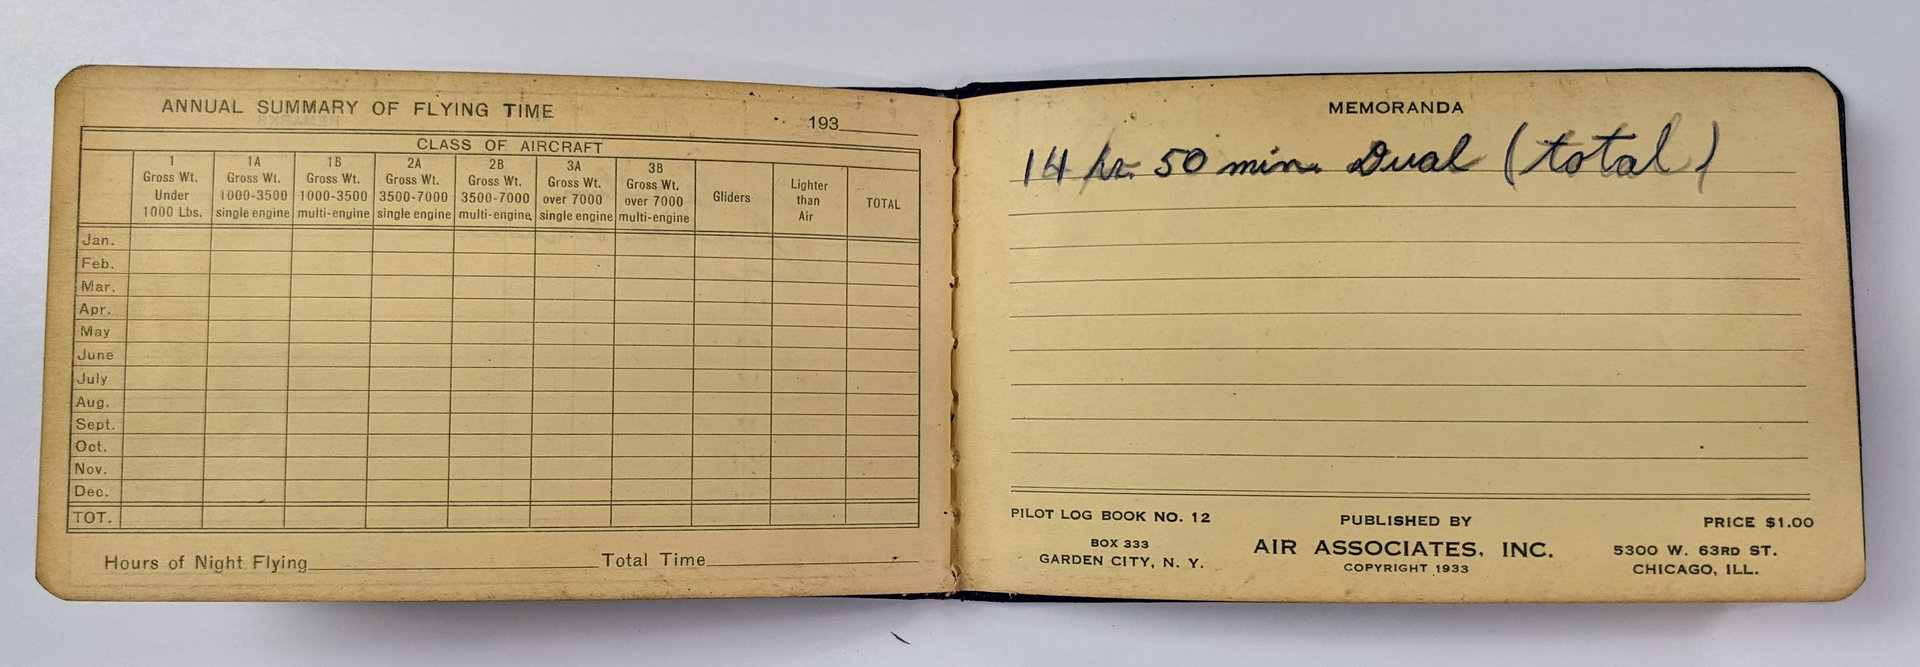 ANNUAL SUMMARY OF FLYING TIME 193
CLASS OF AIRCRAFT
1 Gross Wt. Under 1000 Lbs.
1A Gross Wt. 1000-3500 single engine
1B Gross Wt. 1000-3500 multi-engine
2A Gross Wt. 3500-7000 single engine
2B Gross Wt. 3500-7000 multi-engine
3A Gross Wt. over 7000 single engine
3B Gross Wt. over 7000 multi-engine
Gliders
Lighter than Air
TOTAL
Jan.
Feb.
Mar.
Apr.
May
June
July
Aug.
Sept.
Oct.
Nov.
Dec.
TOT.
Hours of Night Flying Total Time
MEMORANDA
14 hr. 50 min. Dual (total)
PILOT LOG BOOK NO. 12
BOX 333
GARDEN CITY, N. Y.
PUBLISHED BY
AIR ASSOCIATES, INC.
COPYRIGHT 1933
PRICE $1.00
5300 W. 63RD ST.
CHICAGO, ILL.